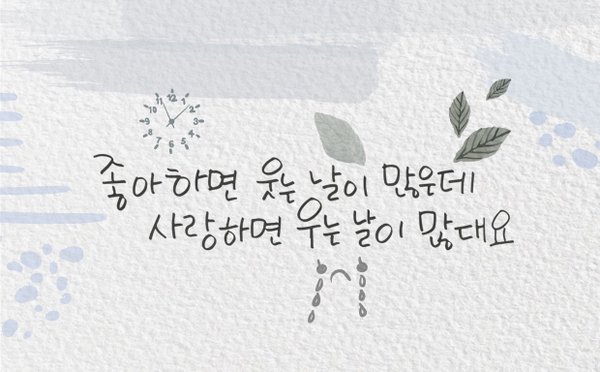 12
1
2
3
4
5
6
7
8
9
10
11
좋아하면 웃는 날이 많은데
사랑하면 우는 날이 많대요